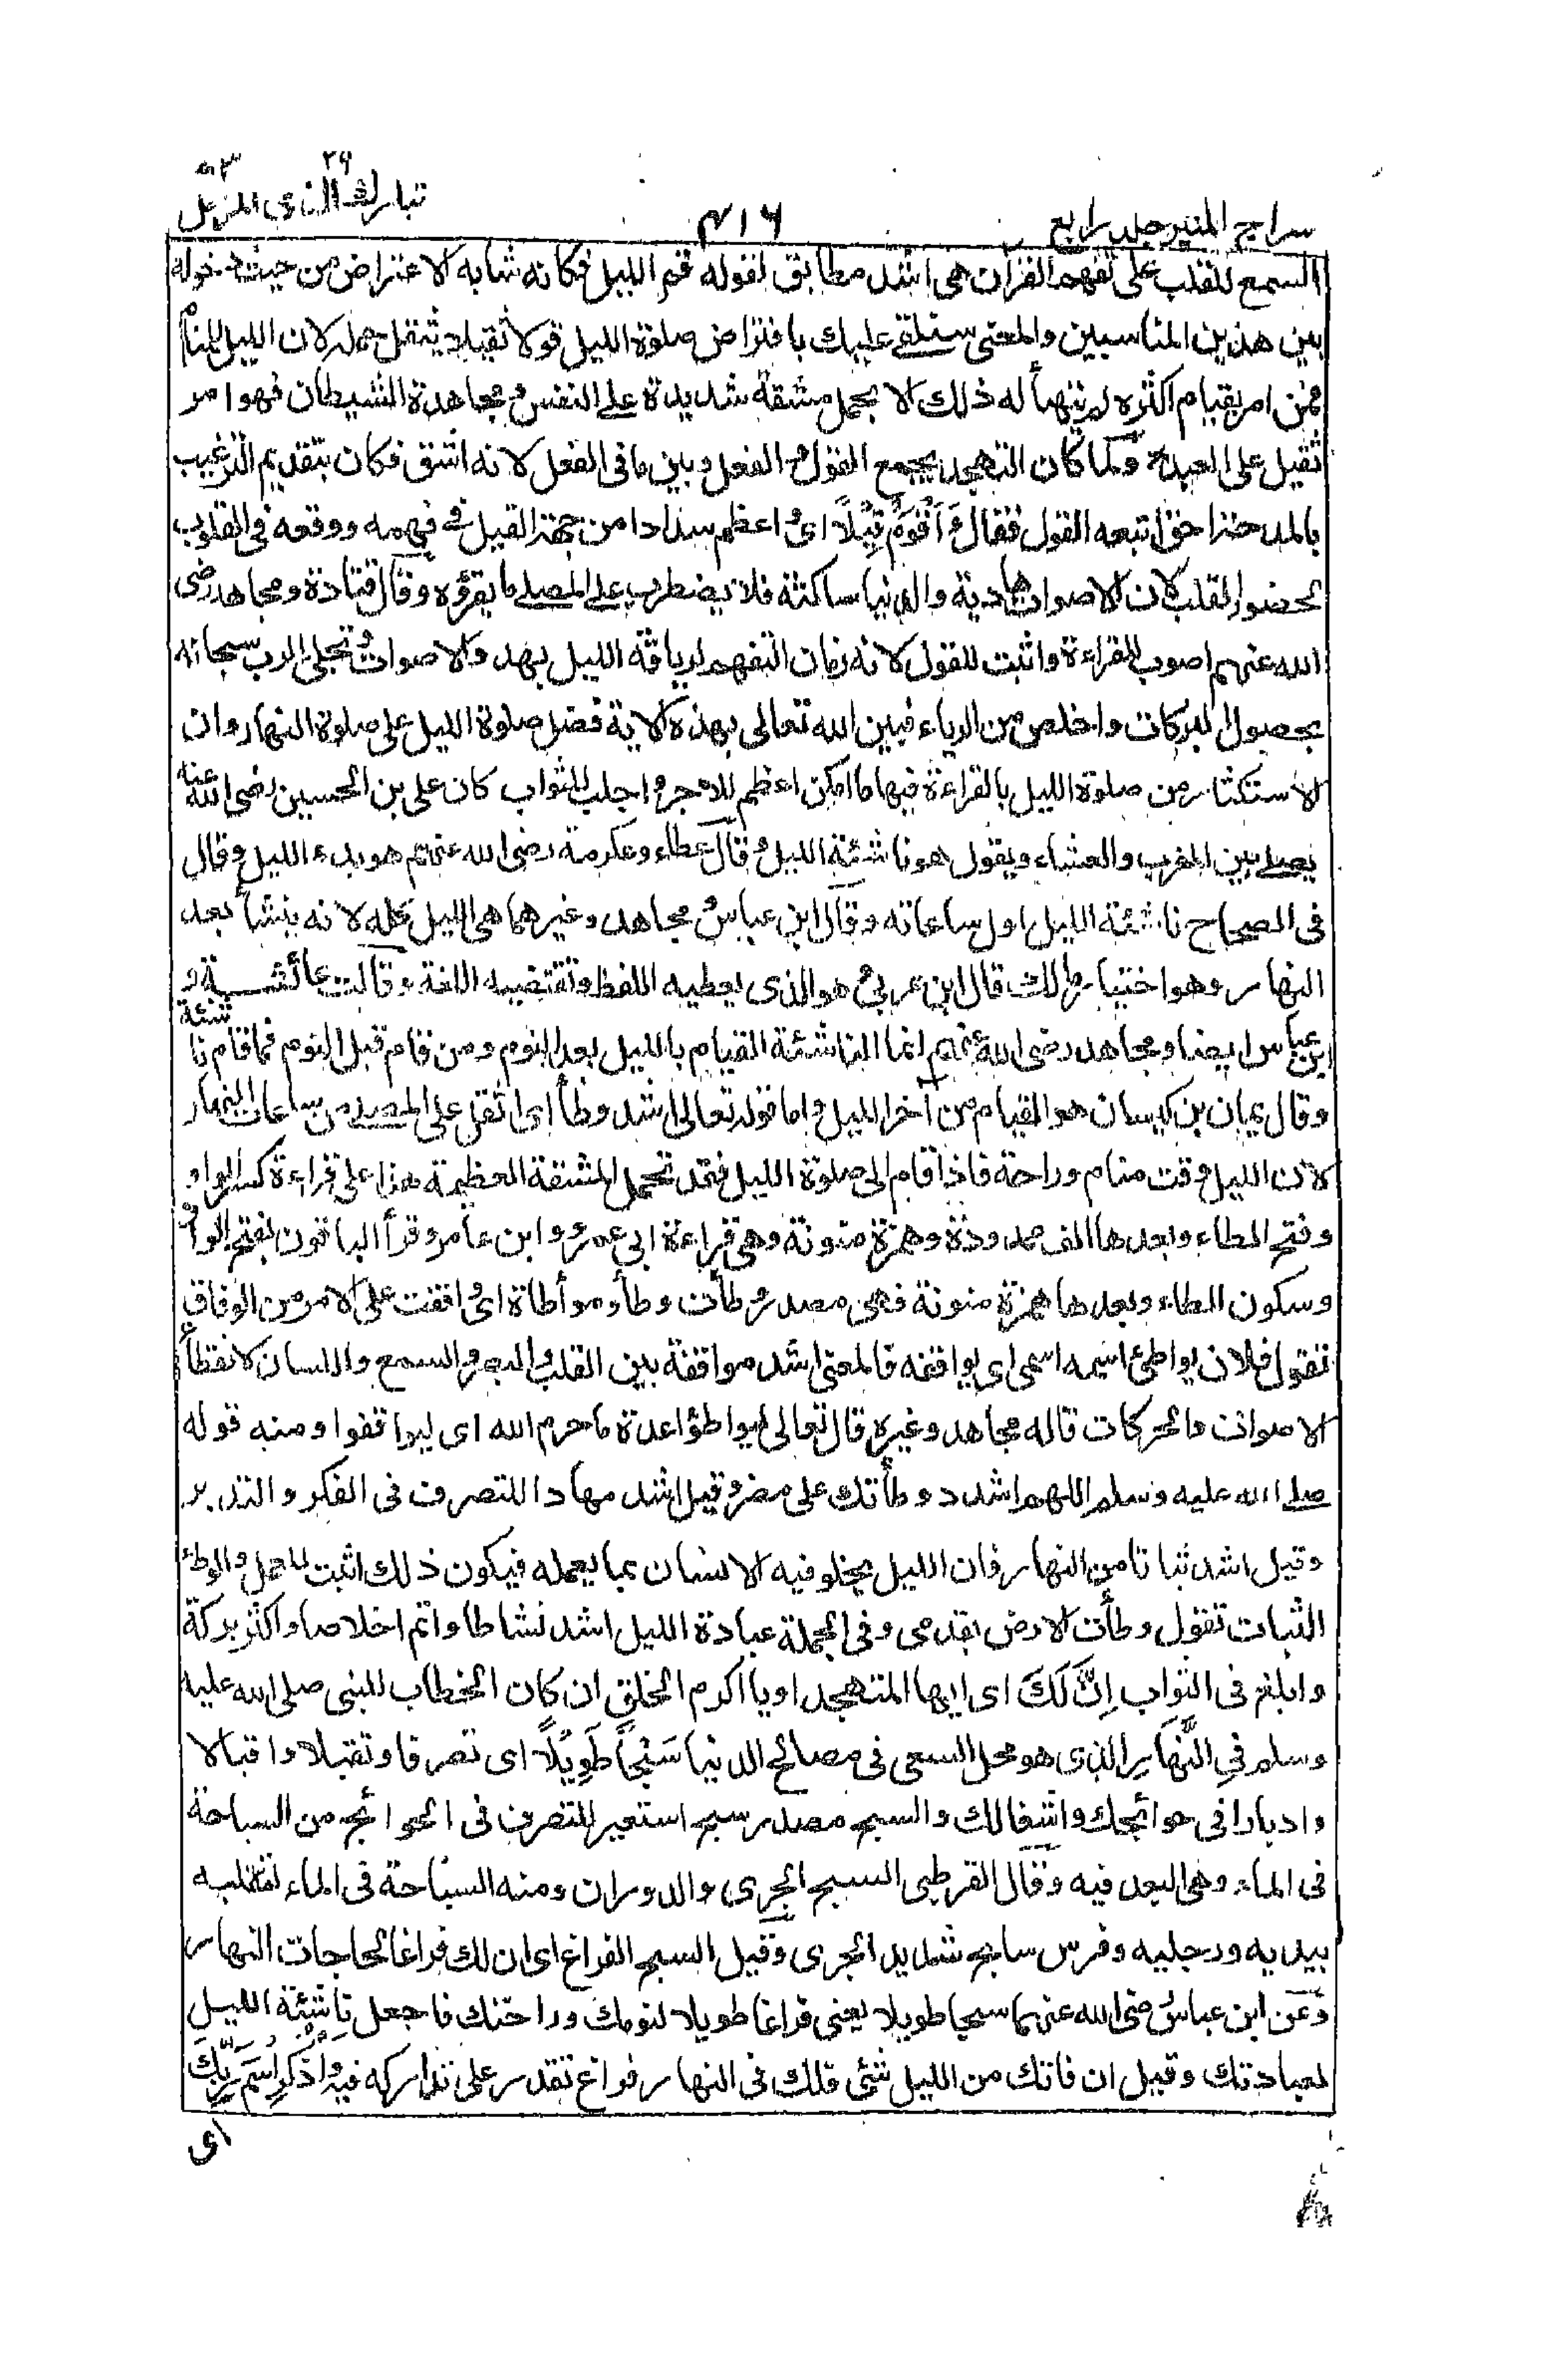 سراج المنير جلد رابع ٤١٦ تبارك الذى ٢٩ المزمل ٧٣
السمع للقلب على تفهم القرآن هى اشد مطابق لقوله قم الليل فكانه شابه الاعتراض من حيث دخوله
بين هذين المتناسبين والمعنى سنلقى عليك بافتراض صلوة الليل قولا ثقيلا يثقل حمله لان الليل للمنام
فمن امر بقيام اكثره لم يتهيأ له ذلك الا بحمل مشقة شديدة على النفس ومجاهدة الشيطان فهو امر
ثقيل على العبد ولما كان التهجد يجمع القول والفعل وبين ما فى الفعل لانه اشق فكان بتقديم الترغيب
بالمد احق اتبعه القول فقال وَاَقْوَمُ قِيْلًا اى واعظم سدادا من جهة القيل فى فهمه ووقعه فى القلوب
لحضور القلب لان الاصوات هادية والدنيا ساكنة فلا يضطرب على المصلى ما يقرؤه وقال قتادة ومجاهد رضى
الله عنهم اصوب للقراءة واثبت للقول لانه زمان التفهم لرياقة الليل بهد والاصوات وتجلى الرب سبحانه
بحصول البركات واخلص من الرياء فبين الله تعالى بهذه الاية فضل صلوة الليل على صلوة النهار وان
الاستكثار من صلوة الليل بالقراءة فيها ما امكن اعظم للاجر واجلب للثواب كان على بن الحسين رضى الله عنه
يصلى بين المغرب والعشاء ويقول هو ناشئة الليل وقال عطاء وعكرمة رضى الله عنهم هو بدء الليل وقال
فى الصحاح ناشئة الليل اول ساعاته وقال ابن عباس ومجاهد وغيرهما هى الليل كله لانه ينشأ بعد
النهار وهو اختيار مالك قال ابن عربى وهو الذى يعطيه اللفظ وتقتضيه اللغة وقالت عائشة و
ابن عباس ايضا ومجاهد رضى الله عنهم انما الناشئة القيام بالليل بعد النوم ومن قام قبل النوم فما قام ناشئة
وقال يمان بن كيسان هو القيام من آخر الليل واما قوله تعالى اشد وطأ اى اثقل على المصلى من ساعات النهار
لان الليل وقت منام وراحة فاذا قام الى صلوة الليل فقد تحمل المشقة العظيمة هذا على قراءة كسر الواو
وفتح الطاء وبعدها الف ممدودة وهمزة منونة وهى قراءة ابى عمرو وابن عامر وقرأ الباقون بفتح الواو
وسكون الطاء وبعدها همزة منونة فهى مصدر وطأت وطأ ومواطاة اى وافقت على الامر من الوفاق
تقول فلان يواطئ اسمه اسمى اى يوافقه فالمعنى اشد موافقة بين القلب والبصر والسمع واللسان لانقطاع
الاصوات والحركات قاله مجاهد وغيره قال تعالى ليواطؤا عدة ما حرم الله اى ليوافقوا ومنه قوله
صلى الله عليه وسلم اللهم اشدد وطأتك على مضر وقيل اشد مهادا للتصرف فى الفكر والتدبر
وقيل اشد ثباتا من النهار فان الليل يخلو فيه الانسان بما يعمله فيكون ذلك اثبت للعمل والوطئ
الثبات تقول وطأت الارض بقدمى وفى الجملة عبادة الليل اشد نشاطا واتم اخلاصا واكثر بركة
وابلغ فى الثواب اِنَّ لَكَ اى ايها المتهجد او يا اكرم الخلق ان كان الخطاب للنبى صلى الله عليه
وسلم فِى النَّهَارِ الذى هو محل السعى فى مصالح الدنيا سَبْحًا طَوِيْلًا اى تصرفا وتقلبا واقبالا
وادبارا فى حوائجك واشغالك والسبح مصدر سبح استعير للتصرف فى الحوائج من السباحة
فى الماء وهى البعد فيه وقال القرطبى السبح الجرى والدوران ومنه السباحة فى الماء لتقلبه
بيديه ورجليه وفرس سابح شديد الجرى وقيل السبح الفراغ اى ان لك فراغا لحاجات النهار
وعن ابن عباس رضى الله عنهما سبحا طويلا يعنى فراغا طويلا لنومك وراحتك فاجعل ناشئة الليل
لعبادتك وقيل ان فاتك من الليل شئ فلك فى النهار فراغ تقدر على تداركه فيه وَاذْكُرِ اسْمَ رَبِّكَ
اى